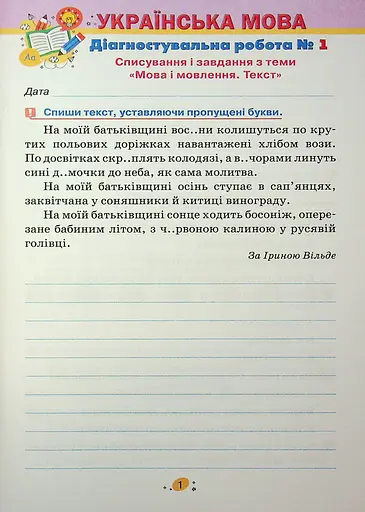 УКРАЇНСЬКА МОВА
Діагностувальна робота № 1
Списування і завдання з теми
«Мова і мовлення. Текст»
Дата
Спиши текст, уставляючи пропущені букви.
На моїй батьківщині вос..ни колишуться по кру-
тих польових доріжках навантажені хлібом вози.
По досвітках скр..плять колодязі, а в..чорами линуть
сині д..мочки до неба, як сама молитва.
На моїй батьківщині осінь ступає в сап'янцях,
заквітчана у соняшники й китиці винограду.
На моїй батьківщині сонце ходить босоніж, опере-
зане бабиним літом, з ч..рвоною калиною у русявій
голівці.
За Іриною Вільде
1